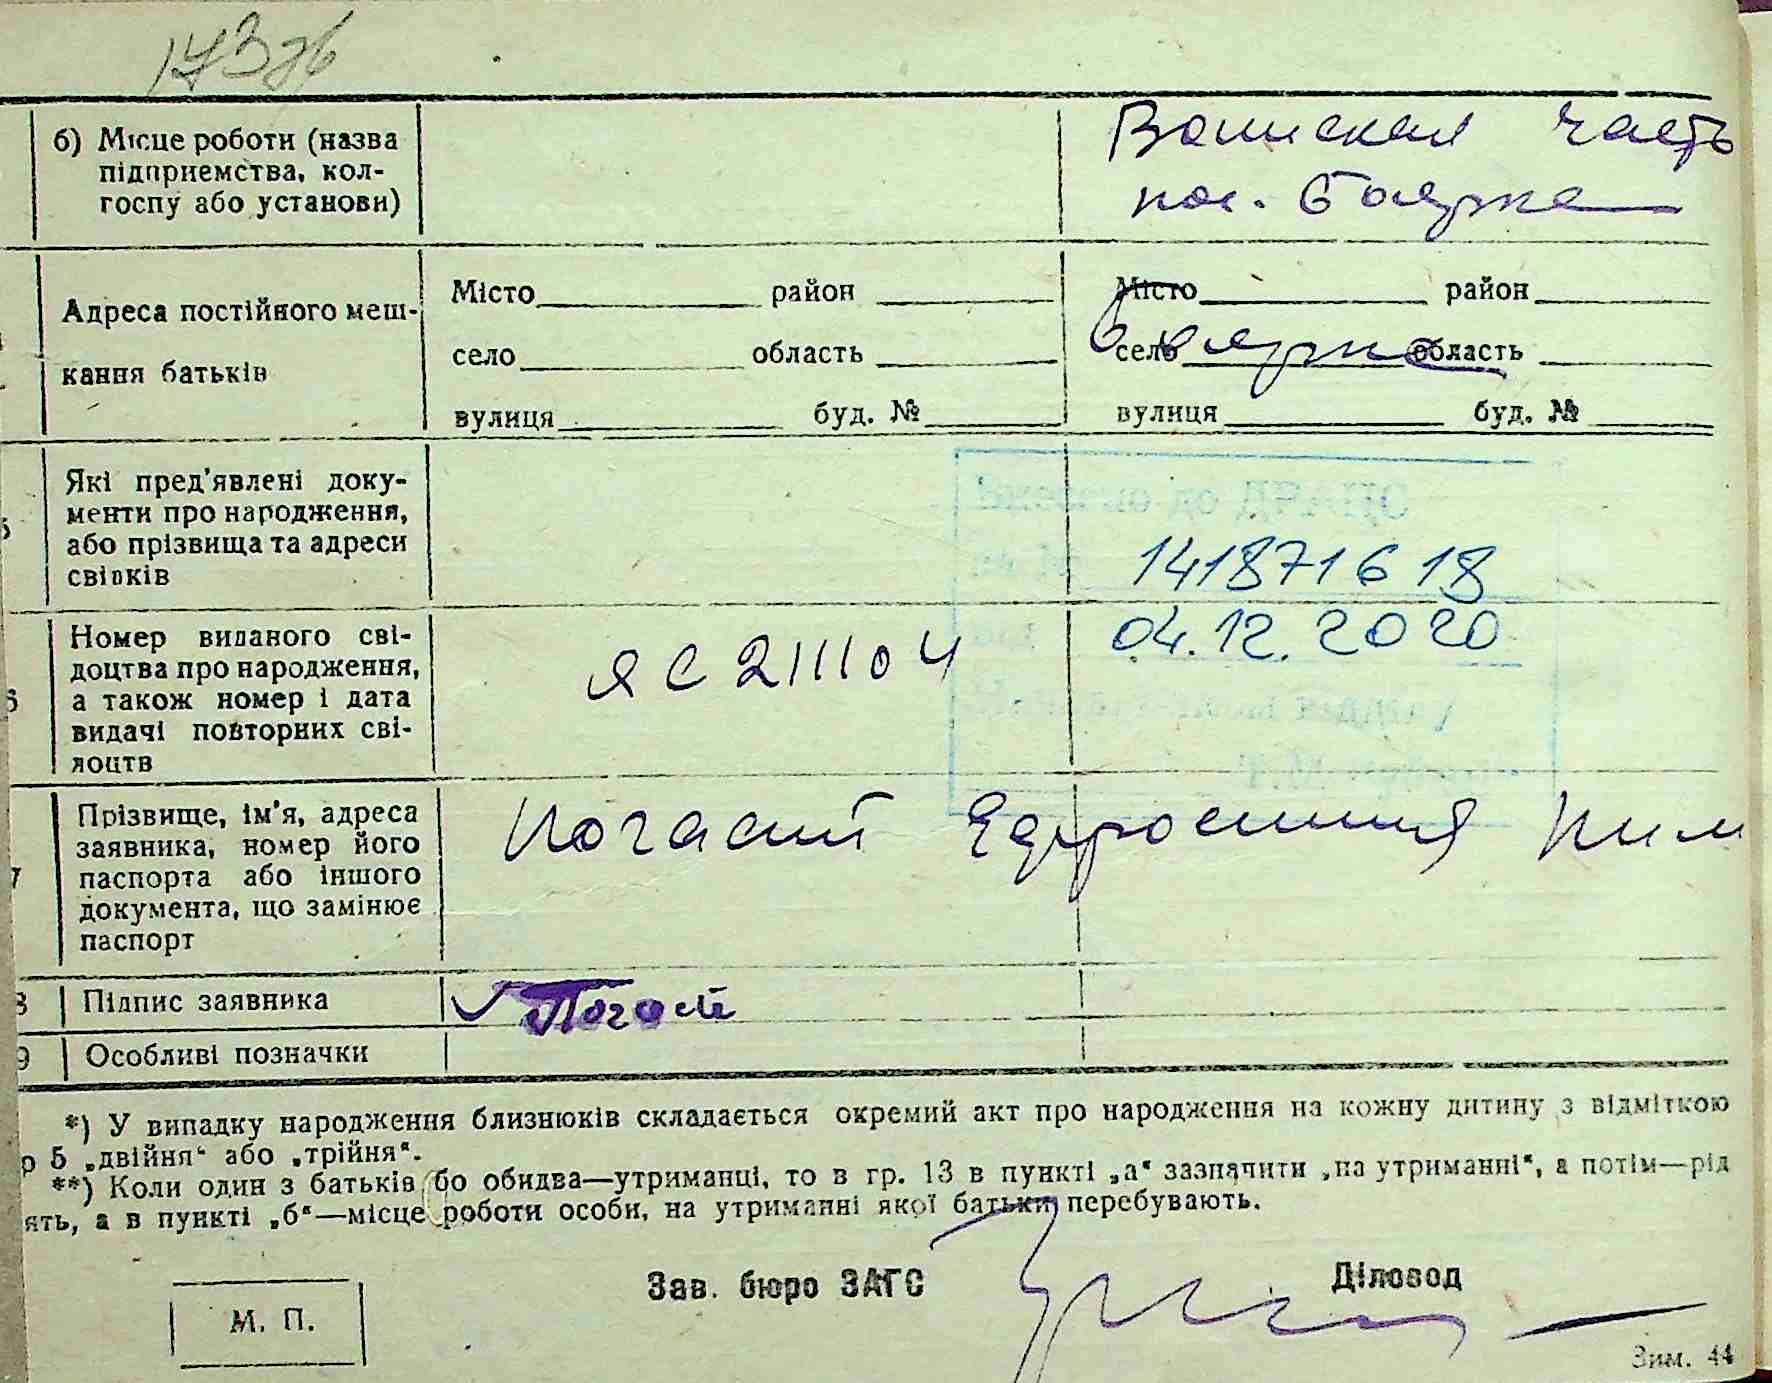 б) Місце роботи (назва
підприемства, кол-
госпу або установи)
Воинская часть
пос. Боярка
Адреса постійного меш-
кання батьків
Місто район
село область
вулиця буд. №
Місто район
село область
Боярка
вулиця буд. №
Які пред'явлені доку-
менти про народження,
або прізвища та адреси
свідків
141871618
Номер виданого сві-
доцтва про народження,
а також номер і дата
видачі повторних сві-
доцтв
ЯС211104
04.12.2020
Прізвище, ім'я, адреса
заявника, номер його
паспорта або іншого
документа, що замінює
паспорт
8 Підпис заявника
9 Особливі позначки
*) У випадку народження близнюків складається окремий акт про народження на кожну дитину з відміткою
р 5 „двійня“ або „трійня“.
**) Коли один з батьків бо обидва—утриманці, то в гр. 13 в пункті „а“ зазначити „на утриманні“, а потім—рід
ять, а в пункті „б“—місце роботи особи, на утриманні якої батьки перебувають.
Зав. бюро ЗАГС
Діловод
М. П.
Зим. 44